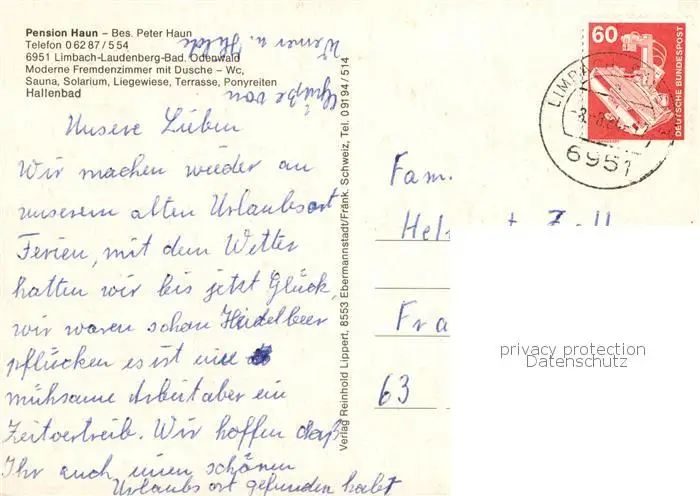 Pension Haun – Bes. Peter Haun
Telefon 0 62 87 / 5 54
6951 Limbach-Laudenberg-Bad. Odenwald
Moderne Fremdenzimmer mit Dusche – Wc,
Sauna, Solarium, Liegewiese, Terrasse, Ponyreiten
Hallenbad
Unsere Lieben
Wir machen wieder an
unserem alten Urlaubsort
Ferien, mit dem Wetter
hatten wir bis jetzt Glück,
wir waren schon Heidelbeer
pflücken es ist eine
mühsame Arbeit aber ein
Zeitvertreib. Wir hoffen daß
Ihr auch einen schönen
Urlaubsort gefunden habt
Grüße von
Werner u. Hilde
Verlag Reinhold Lippert, 8553 Ebermannstadt/Fränk. Schweiz, Tel. 09194 / 514
60
DEUTSCHE BUNDESPOST
LIMBACH
6951
Fam.
Hel
Fra
63
privacy protection
Datenschutz